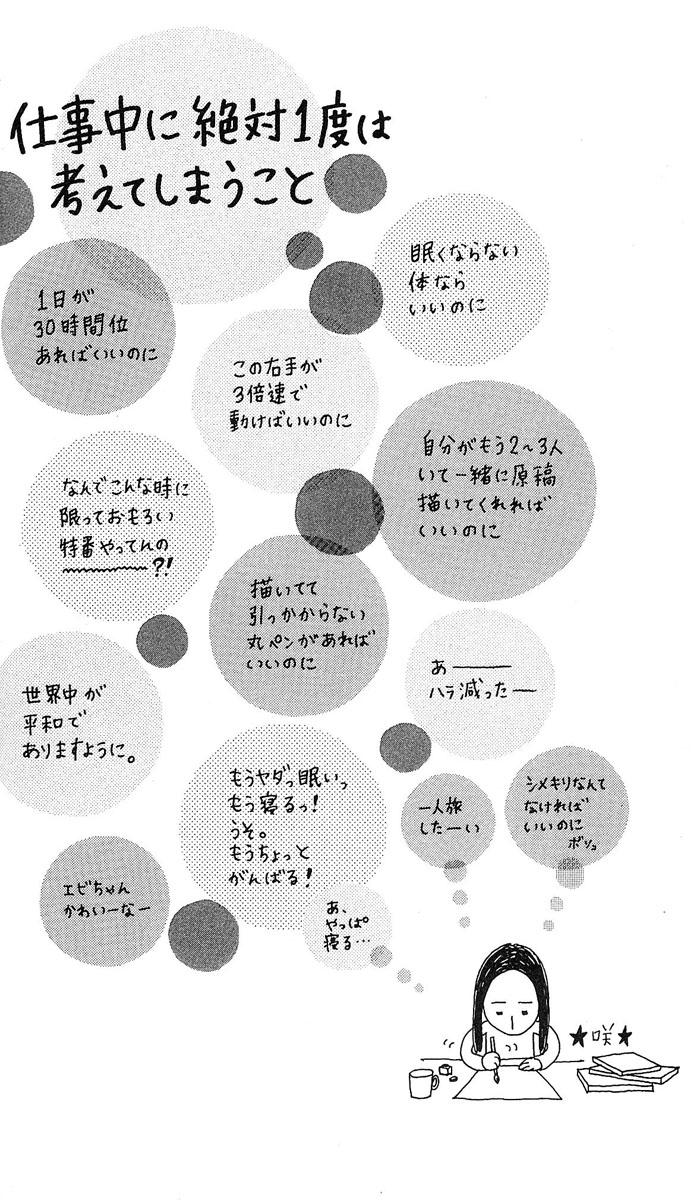 仕事中に絶対1度は
考えてしまうこと
眠くならない
体なら
いいのに
1日が
30時間位
あればいいのに
この右手が
3倍速で
動けばいいのに
自分がもう2〜3人
いて一緒に原稿
描いてくれれば
いいのに
なんでこんな時に
限っておもろい
特番やってんの
?!
描いてて
引っかからない
丸ペンがあれば
いいのに
あ――
ハラ減ったー
世界中が
平和で
ありますように。
もうヤダっ眠いっ
もう寝るっ!
うそ。
もうちょっと
がんばる!
あ、
やっぱ
寝る…
一人旅
したーい
シメキリなんて
なければ
いいのに
ボソッ
エビちゃん
かわいーなー
★咲★